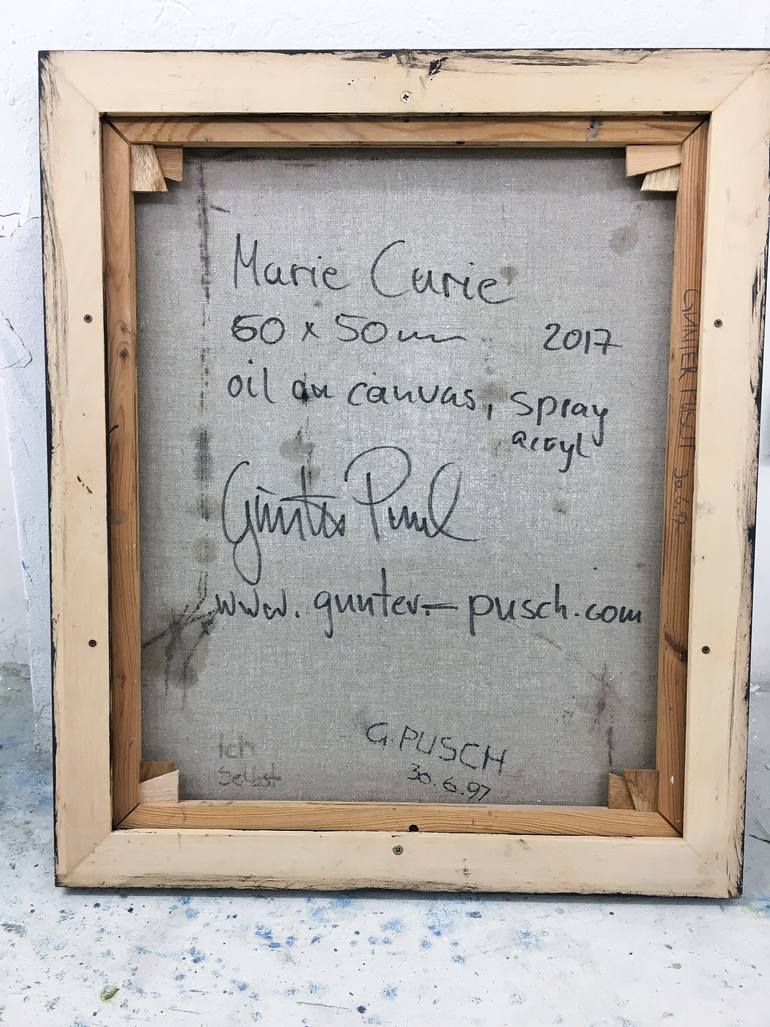 Marie Curie
60 x 50 cm 2017
oil on canvas, spray
acryl
Günter Pusch
www.gunter-pusch.com
Ich
Selbst
G. PUSCH
30.6.97
GÜNTER PUSCH 30.6.97